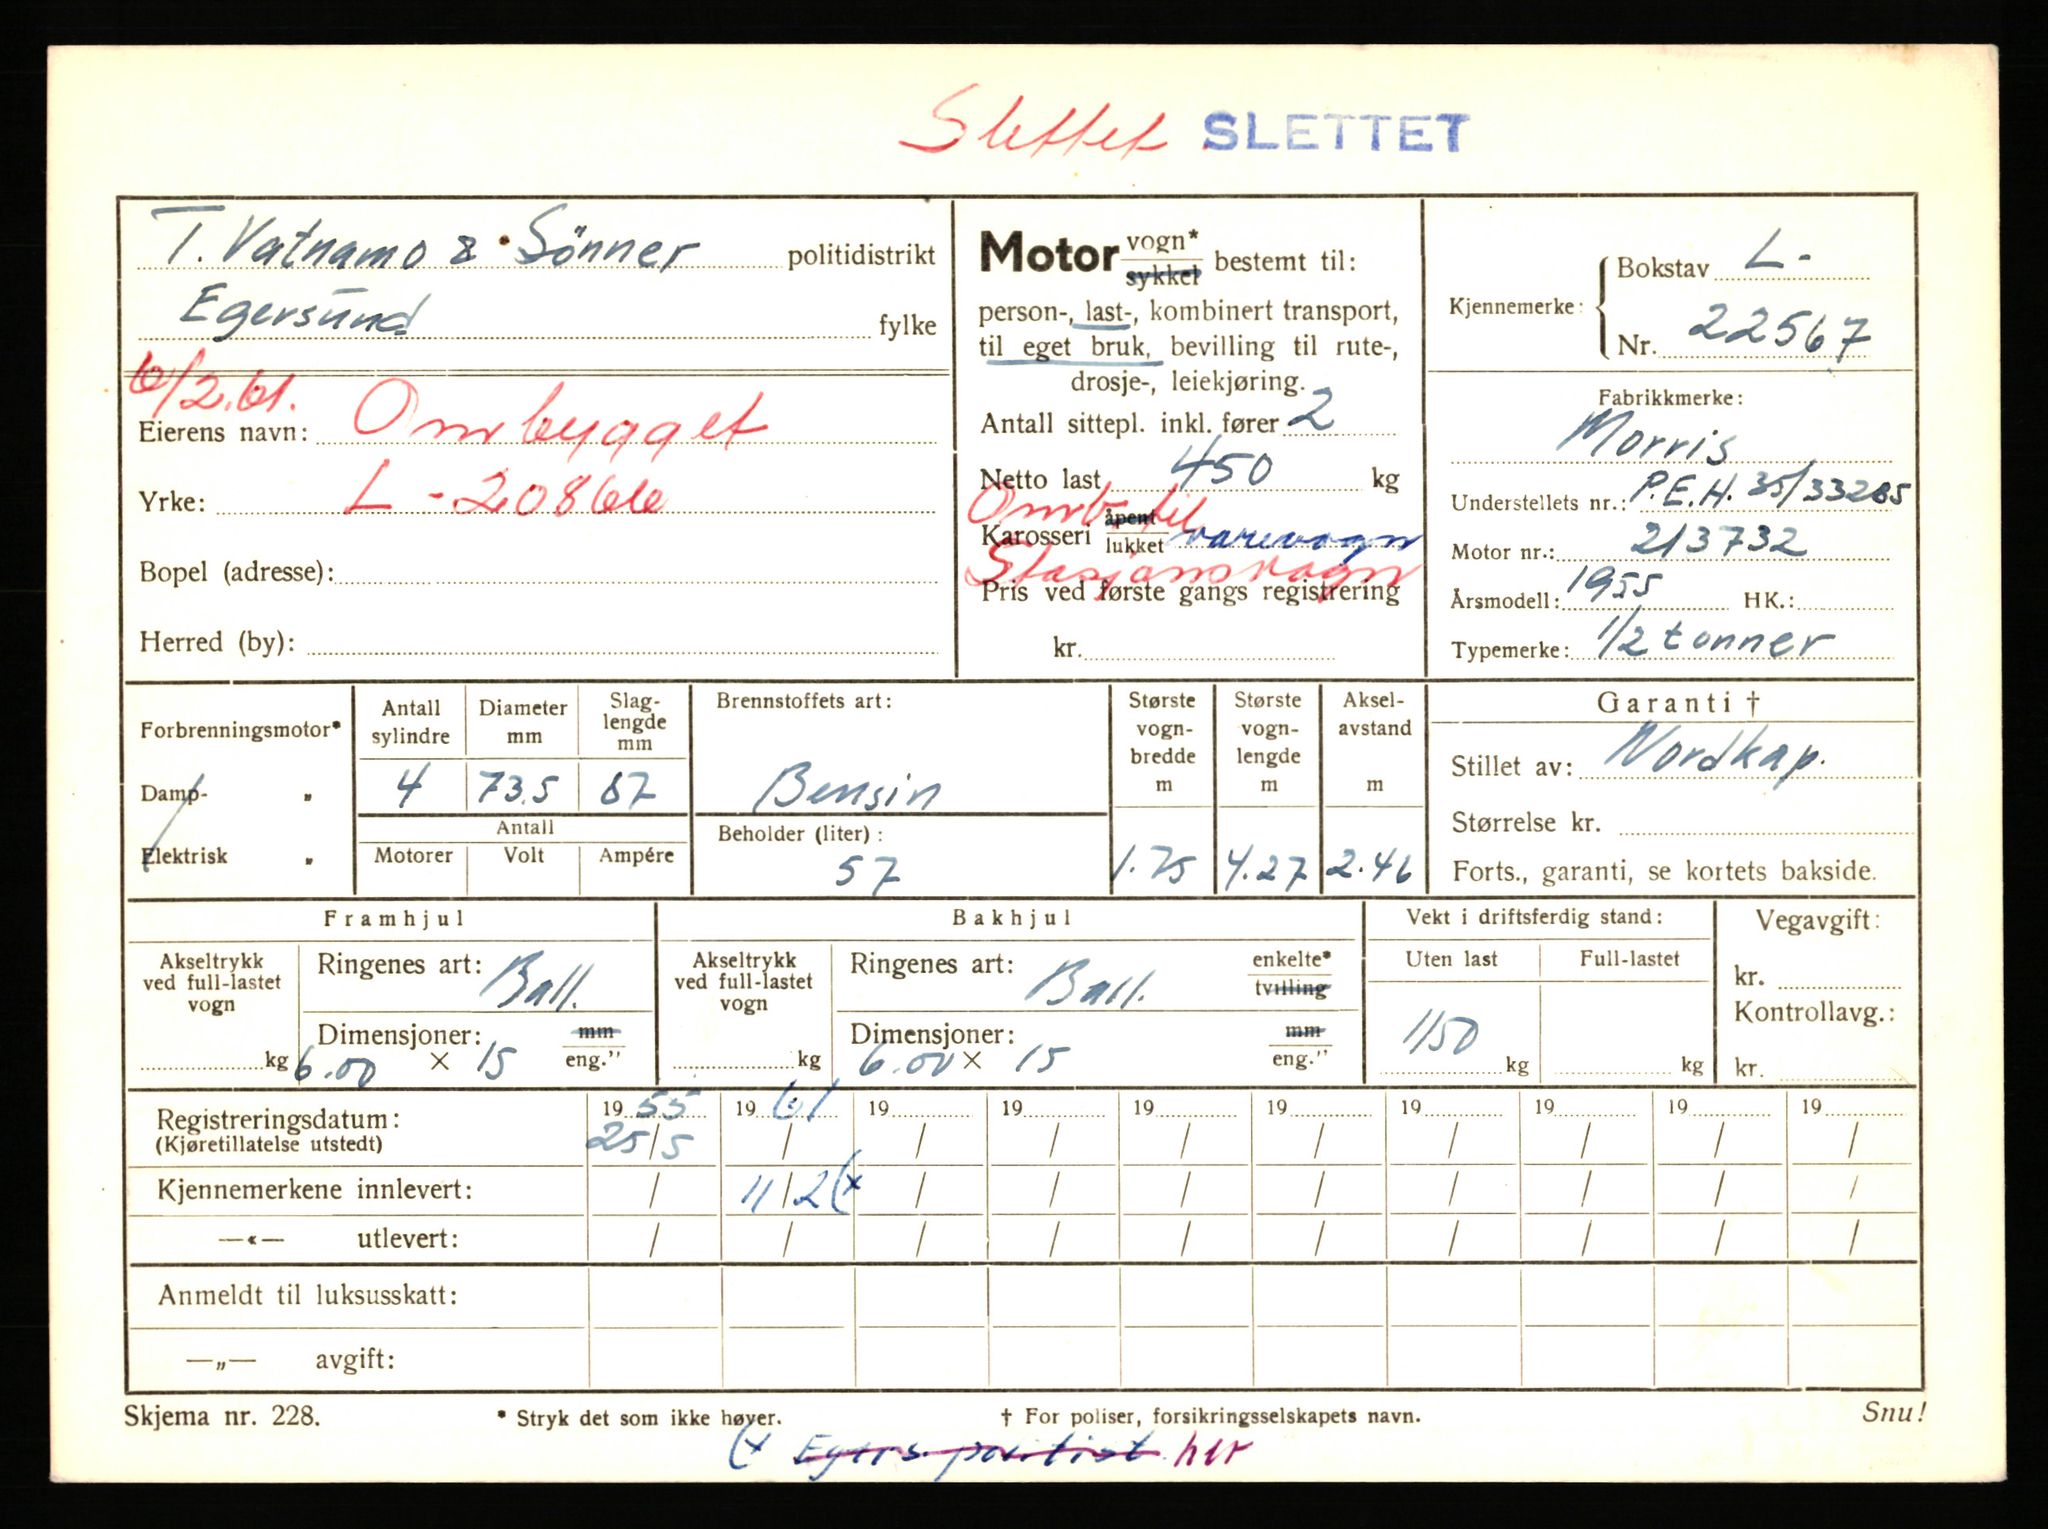 Slettet SLETTET
T. Vatnamo & Sönner politidistrikt
Egersund fylke
6/2.61.
Eierens navn: Ombygget
Yrke: L - 20866
Bopel (adresse):
Herred (by):
Motor vogn* / sykkel bestemt til:
person-, last-, kombinert transport,
til eget bruk, bevilling til rute-,
drosje-, leiekjøring.
Antall sittepl. inkl. fører 2
Netto last 450 kg
Omb. til
Karosseri åpent / lukket varevogn
Stasjonsvogn
Pris ved første gangs registrering
kr.
Kjennemerke: Bokstav L-
Nr. 22567
Fabrikkmerke:
Morris
Understellets nr.: P.E.H. 35/33285
Motor nr.: 213732
Årsmodell: 1955 HK.:
Typemerke: 1/2 tonner
Forbrenningsmotor*
Damp- "
Elektrisk "
Antall sylindre Diameter mm Slag-lengde mm
4 73.5 87
Antall
Motorer Volt Ampére
Brennstoffets art:
Bensin
Beholder (liter):
57
Største vogn-bredde m Største vogn-lengde m Aksel-avstand m
1.75 4.27 2.46
Garanti †
Stillet av: Nordkap.
Størrelse kr.
Forts., garanti, se kortets bakside.
Framhjul
Akseltrykk ved full-lastet vogn
kg
Ringenes art: Ball.
Dimensjoner: mm / eng."
6.00 × 15
Bakhjul
Akseltrykk ved full-lastet vogn
kg
Ringenes art: Ball. enkelte* / tvilling
Dimensjoner: mm / eng."
6.00 × 15
Vekt i driftsferdig stand:
Uten last Full-lastet
1150 kg kg
Vegavgift:
kr.
Kontrollavg.:
kr.
Registreringsdatum: 19 55 19 61 19 19 19 19 19 19 19 19
(Kjøretillatelse utstedt) 25/5 / / / / / / / / /
Kjennemerkene innlevert: / 11/2 (x / / / / / / / /
—«— utlevert: / / / / / / / / / /
Anmeldt til luksusskatt:
—„— avgift:
Skjema nr. 228. * Stryk det som ikke høver. † For poliser, forsikringsselskapets navn. Snu!
(x Egers. politist. her